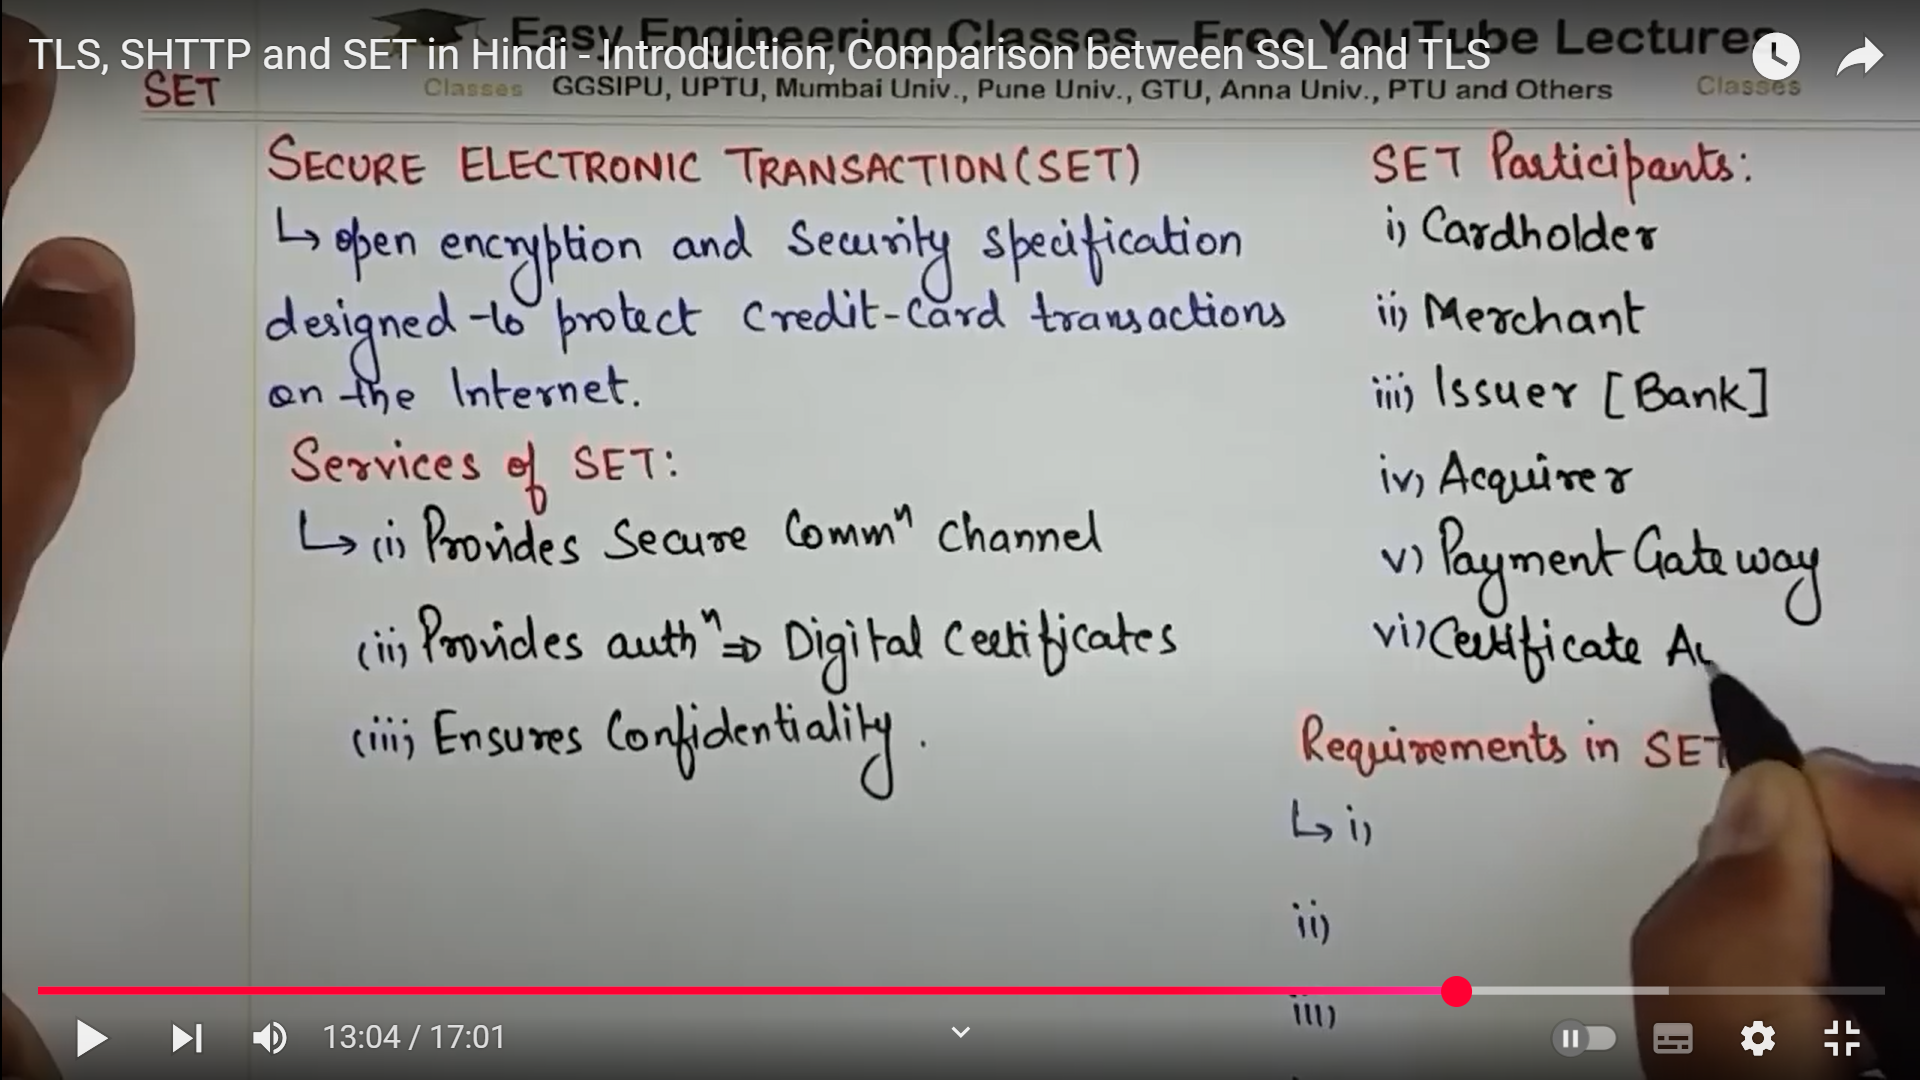 Easy Engineering Classes – Free YouTube Lectures
TLS, SHTTP and SET in Hindi - Introduction, Comparison between SSL and TLS
SET
Classes GGSIPU, UPTU, Mumbai Univ., Pune Univ., GTU, Anna Univ., PTU and Others Classes
SECURE ELECTRONIC TRANSACTION(SET)
↳ open encryption and Security specification
designed to protect Credit-Card transactions
on the Internet.
Services of SET:
↳ (i) Provides Secure Commⁿ Channel
(ii) Provides authⁿ ⇒ Digital Certificates
(iii) Ensures Confidentiality.
SET Participants:
i) Cardholder
ii) Merchant
iii) Issuer [Bank]
iv) Acquirer
v) Payment Gateway
vi) Certificate Au
Requirements in SET
↳ i)
ii)
iii)
13:04 / 17:01